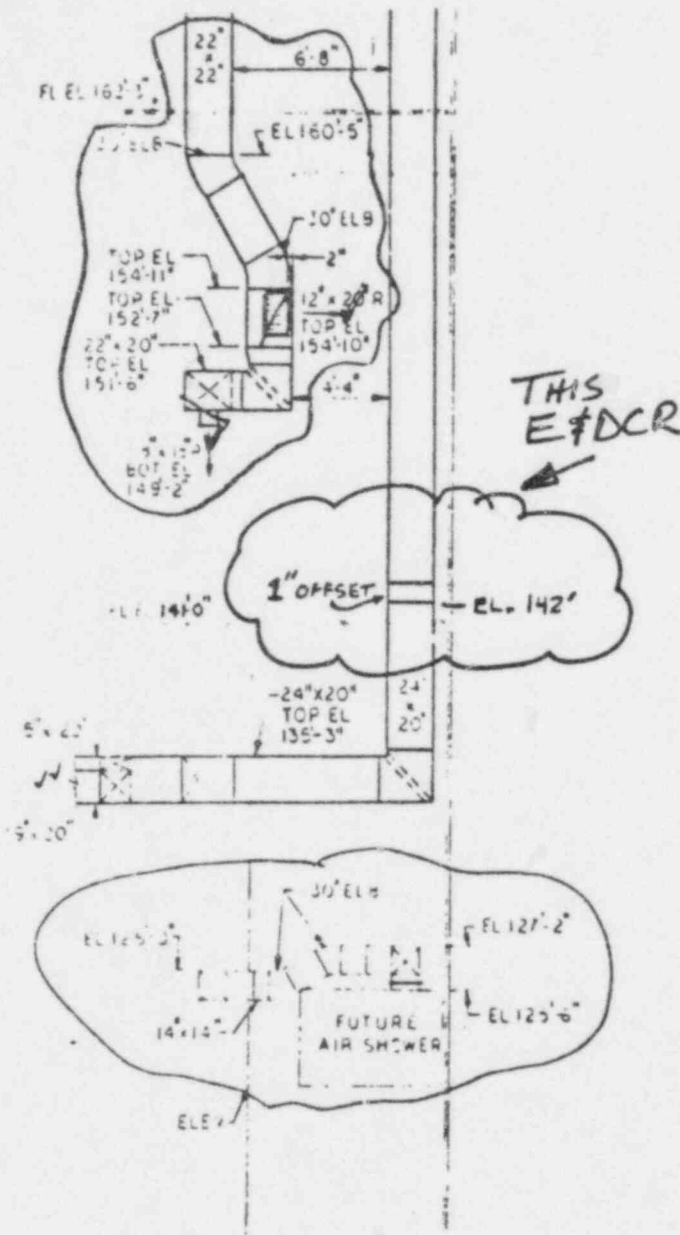 22"
x
22"
6'-8"
FL EL 162'-3"
30° ELB
EL 160'-5"
30° ELB
2"
TOP EL
154'-11"
TOP EL
152'-7"
12" x 20" R
TOP EL
154'-10"
22" x 20"
TOP EL
151'-6"
4'-4"
BOT EL
149'-2"
THIS
E&DCR
1" OFFSET
EL. 142'
141'-0"
24"X20"
TOP EL
135'-3"
24"
x
20"
30° ELB
EL 127'-2"
14"x14"
FUTURE
AIR SHOWER
EL 125'-6"
ELEV